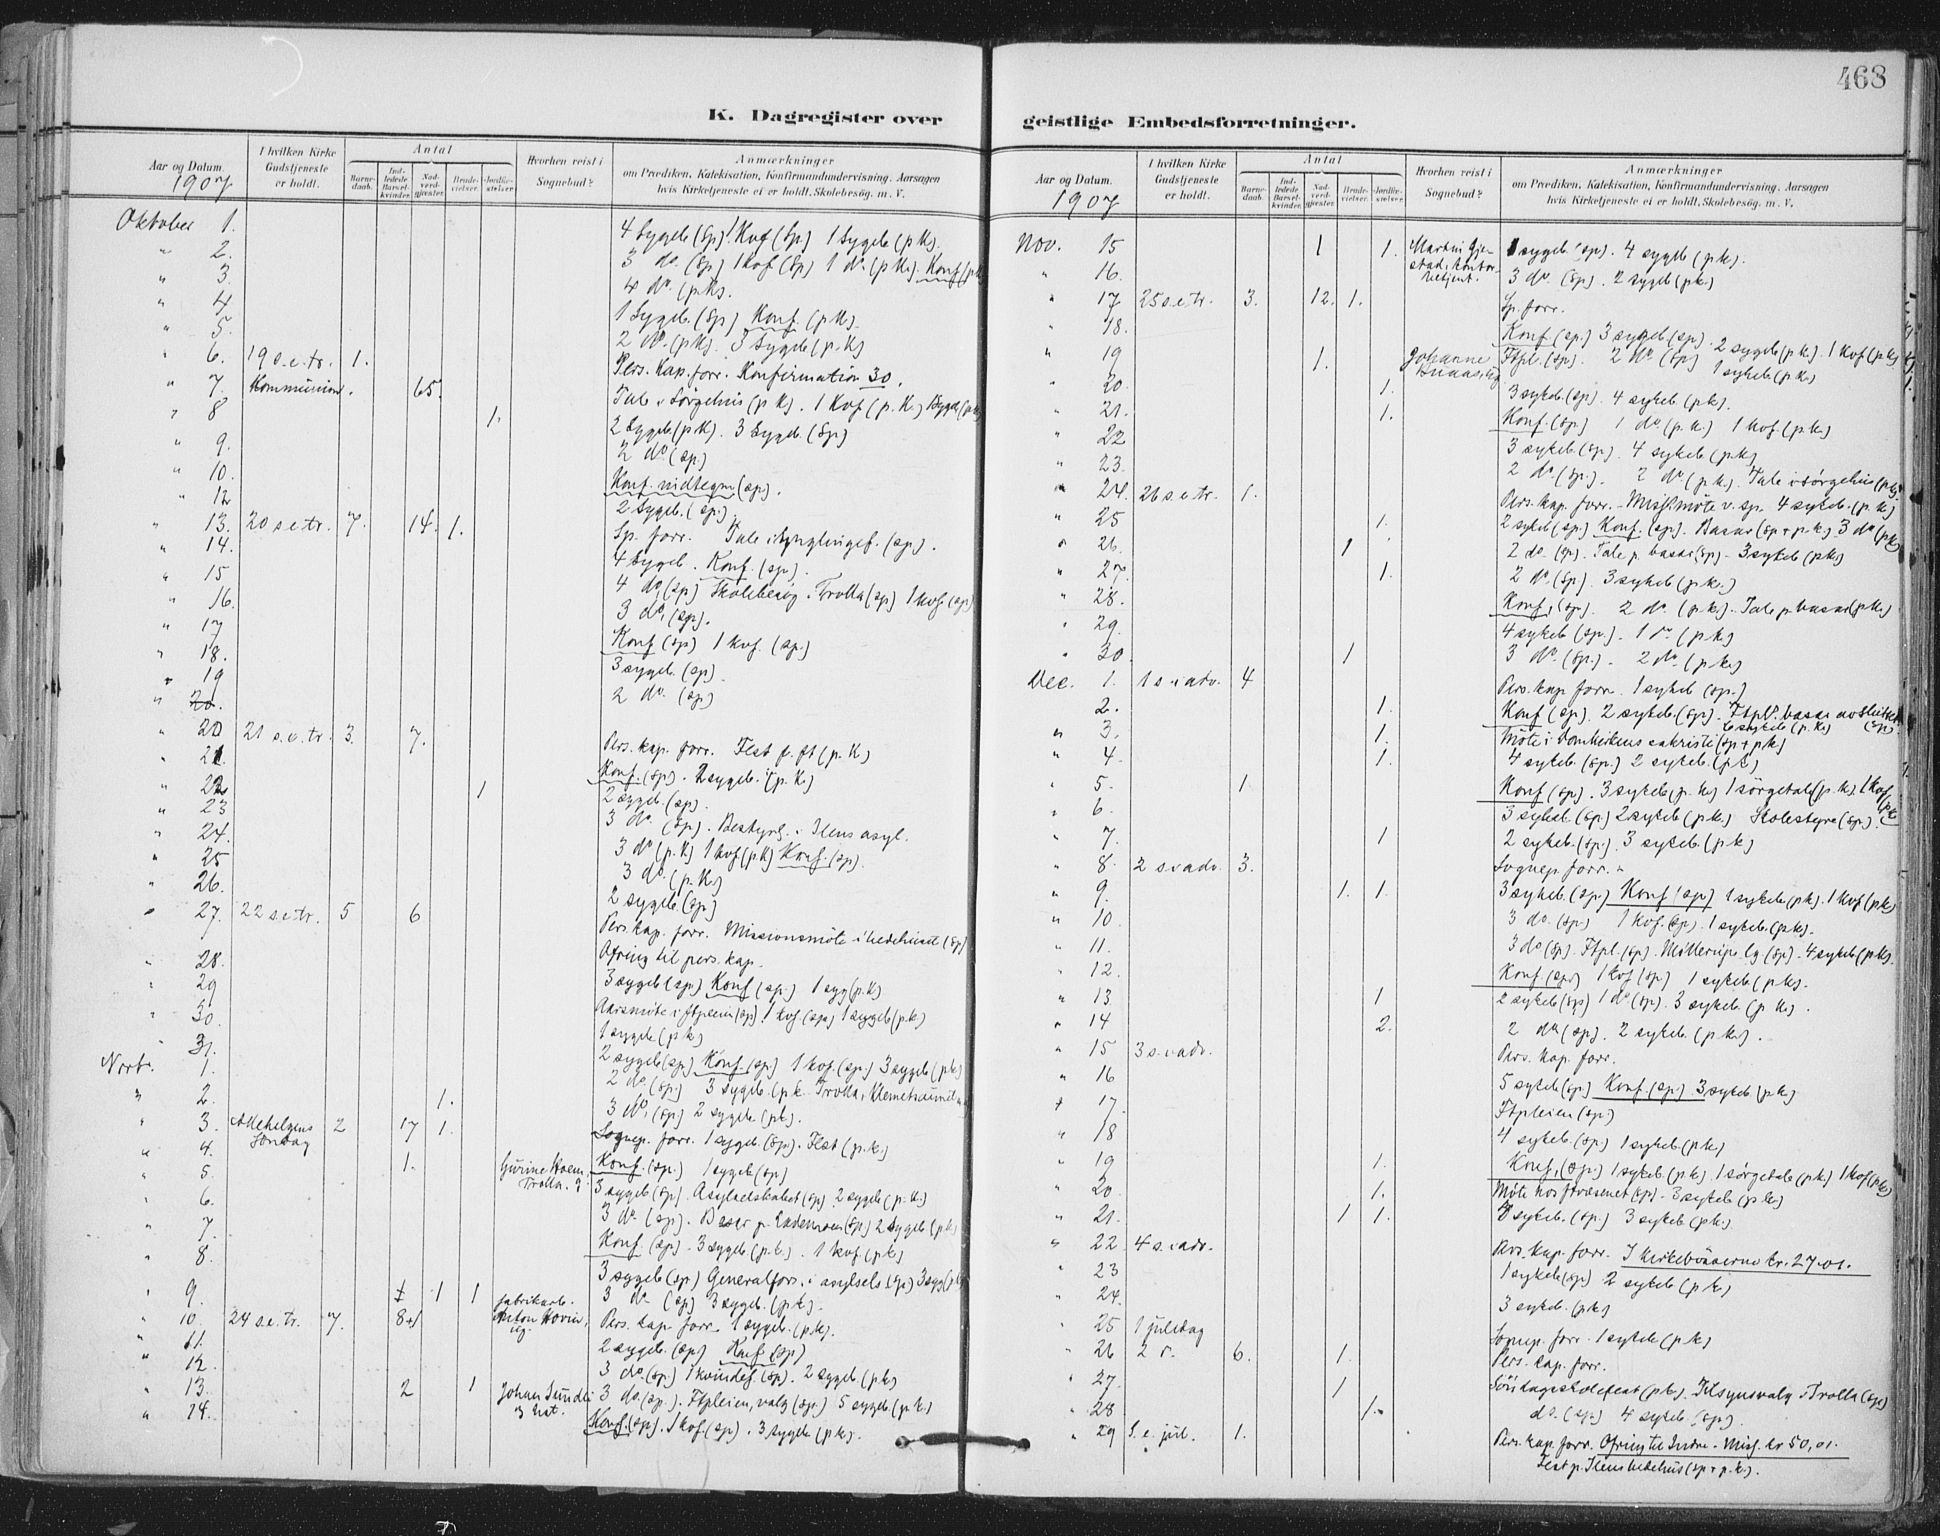 468
K. Dagregister over geistlige Embedsforretninger.
Aar og Datum.
1907
I hvilken Kirke Gudstjeneste er holdt.
Antal
Barnedaab.
Indledede Barselkvinder.
Nadverdgjester.
Brudevielser.
Jordfæstelser
Hvorhen reist i Sognebud?
Anmærkninger
om Prædiken, Katekisation, Konfirmandundervisning, Aarsagen
hvis Kirketjeneste ei er holdt, Skolebesøg. m. V.
Oktober 1. 4 Sygeb (Sp) 1 Kof (Sp) 1 Sygeb (p.k).
" 2. 3 do. (Sp) 1 Kof (Sp) 1 do. (p.k.). Konf (p.k
" 3. 4 do. (p.k).
" 4 1 Sygeb. (Sp) Konf. (p.k).
" 5. 2 do. (p.k). 3 Sygeb (p.k)
" 6. 19 s.e.tr. 1. Pers. Kap. forr. Konfirmation 30.
" 7. Kommunion. 65. Tale i Sørgehus (p.k). 1 Kof (p.k.)
" 8 1. 2 Sygeb. (p.k). 3 Sygeb. (Sp)
" 9. 2 do. (sp)
" 10. Konf. (sp).
" 12 2 Sygeb. (sp)
" 13. 20 s.e.tr. 7. 14. 1. Sp. forr. Tale i Ynglingef. (sp).
" 14. 4 Sygeb. Konf. (sp).
" 15 4 do. (sp) Skolebesøg i Trolla (sp) 1 kof (sp)
" 16. 3 do. (sp).
" 17 Konf (sp) 1 kof. (sp.)
" 18. 3 sygeb. (sp)
" 19 2 do. (sp)
" 20.
" 20 21 s.e.tr. 3. 7. Pers. kap. forr. Fest f. (p.k)
" 21. Konf. (sp). 2 sygeb. (p.k.)
" 22 1 2 sygeb. (sp).
" 23 3 do. (sp). Bestyrl. i Ilens asyl.
" 24. 3 do (p.k) 1 kof (p.k) Konf. (sp).
" 25 3 do. (p.k.)
" 26. 2 sygeb (sp)
" 27. 22 s.e.tr. 5 6 Pers. kap. forr. Missionsmöte i bedehuset (sp)
" 28. Ofring til pers. kap.
" 29 3 sygeb (sp) Konf (sp) 1 syg (p.k)
" 30. Aarsmöte i (sp) 1 kof (sp) 1 sygeb (p.k)
" 31. 1 sygeb (p.k)
Novbr. 1. 2 sygeb (sp) Konf. (sp) 1 kof. (sp.) 3 sygeb (p.k)
" 2. 1. 2 do. (sp) 3 sygeb. (p.k. Trolla,
" 3. Allehelgens Søndag 2 17 1. 3 do. (sp) 2 sygeb. (pk).
" 4. 1. Sognep. forr. 1 sygeb. (sp). Fest (p.k.)
" 5. Gurine Hoem, Trolla. Konf. (sp.) 1 sygeb (sp)
" 6. 3 sygeb (sp). Asylselskabet (sp) 2 sygeb (p.k)
" 7. 3 do. (sp). 2 sygeb (p.k)
" 8. Konf. (sp). 3 sygeb. (p.k.). 1 kof (p.k)
" 9. 1 1 3 sygeb (sp) Generalfors. i asylselsk (sp) 3 syg (p.k)
3 do (sp) 3 sygeb. (p.k).
" 10. 24 s.e.tr. 7. 8+1 fabrikarb. Anton Hovin, Pers. kap forr. 1 sygeb. (p.k).
" 11. 2 sygeb. (sp) Konf (sp)
" 12. 3 do. (sp) (sp). 2 sygeb (p.k)
" 13. 2 1 Johan Sundli 3 do. (sp). Ftpleien, valg (sp.) 5 sygeb (p.k.)
" 14. Konf. (sp). 1 kof (sp). 3 sygeb (p.k).
Aar og Datum.
1907
I hvilken Kirke Gudstjeneste er holdt.
Antal
Barnedaab.
Indledede Barselkvinder.
Nadverdgjester.
Brudevielser.
Jordfæstelser
Hvorhen reist i Sognebud?
Anmærkninger
om Prædiken, Katekisation, Konfirmandundervisning, Aarsagen
hvis Kirketjeneste ei er holdt, Skolebesøg. m. V.
Nov. 15 1 1. Martin Gjestad, kontorbetjent. 1 sygeb (sp). 4 sygeb (p.k).
" 16. 3 do. (sp). 2 sygeb (p.k)
" 17 25 s.e.tr. 3. 12. 1. Sp. forr.
" 18. Konf (sp) 3 sygeb (sp). 2 sygeb (p.k). 1 kof (p.k)
" 19 1. Johanne Ftpl. (sp). 2 do (sp) 1 sykeb (p.k)
" 20. 1. 3 sykeb. (sp). 4 sykeb (p.k).
" 21. 1. Konf. (sp) 1 do. (p.k.) 1 kof (p.k)
" 22 3 sykeb (sp). 4 sykeb (p.k)
" 23. 2 do (sp). 2 do. (p.k). Tale i sörgehus (p.k)
" 24. 26 s.e.tr. 1. Pers. kap. forr. Miss.möte v. sp. 4 sykeb. (p.k)
" 25 1. 2 sykeb (sp) Konf. (sp). Basar (sp + p.k) 3 do (p.k)
" 26. 1 2 do. (sp). Tale p. basar (sp) - 3 sykeb (p.k)
" 27. 1. 2 do. (sp). 3 sykeb (p.k.)
" 28. Konf. (sp). 2 do. (p.k.). Tale p basar (p.k)
" 29. 4 sykeb (sp). 1 do. (p.k)
" 30 1 3 do. (sp). 2 do. (p.k.)
Dec. 1. 1 s i adv. 4 Pers. kap forr. 1 sykeb (sp.)
" 2. 1. Konf (sp). 2 sykeb. (sp). Ftpl. basar avsluttet (sp)
" 3. 1. Möte i Domkirkens sakristi (sp + p.k)
" 4. 1. 4 sykeb. (sp.) 2 sykeb. (p.k)
" 5. 1 Konf (sp). 3 sykeb (p.k) 1 sörgetale (p.k). 1 kof (p.k)
" 6. 3 sykeb. (sp) 2 sykeb (p.k) Skolestyre (sp).
" 7. 1 2 sykeb. (sp). 3 sykeb. (p.k)
" 8. 2 s i adv. 3. Sognep. forr.
" 9. 1. 1. 3 sykeb. (sp) Konf (sp) 1 sykeb (p.k). 1 kof (p.k)
" 10. 3 do. (sp) 1 kof. (sp) 1 sykeb (p.k).
" 11. 3 do (sp). Ftpl. (sp). (sp) - 4 sykeb (p.k).
" 12. Konf. (sp) 1 kof (sp) 1 sykeb (p.k).
" 13 1 2 sykeb (sp) 1 do (sp). 3 sykeb (p.k).
" 14 2. 2 do (sp). 2 sykeb (p.k.).
" 15 3 s. i adv. Pers. kap. forr.
" 16 5 sykeb (sp) Konf (sp) 3 sykeb. (p.k)
" 17. Ftpleien (sp)
" 18 4 sykeb. (sp) 1 sykeb (p.k)
" 19 1. Konf. (sp) 1 sykeb. (p.k) 1 sörgetale (p.k) 1 kof (p.k)
" 20. 1. Möte hos (sp). 3 sykeb (p.k)
" 21. 1 1. 8 sykeb. (sp) 3 sykeb (p.k.)
" 22 4 s. i adv. Pers. kap. forr. I kirkebösserne kr. 27.01.
" 23 1 sykeb (sp) 2 sykeb (p.k)
" 24. 3 sykeb. (p.k)
" 25 1 juledag Sognep. forr. 1 sykeb (p.k)
" 26 2 6. 1. Pers. kap. forr.
" 27. 1 Söndagsskolefest (p.k). Tilsynsvalg i Trolla (sp)
" 28 1. do. (sp) 4 sykeb (sp).
" 29 S. e. jul. 1. Pers. kap. forr. Ofring til Indre-Miss. kr 50,01.
Fest p. Ilens bedehus (sp + p.k.).